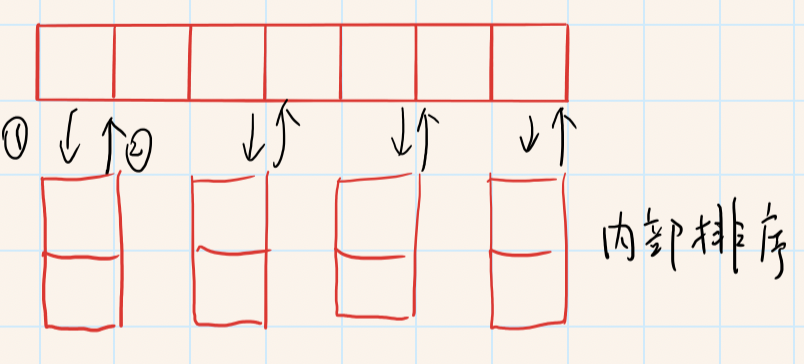 ① ②
内部排序